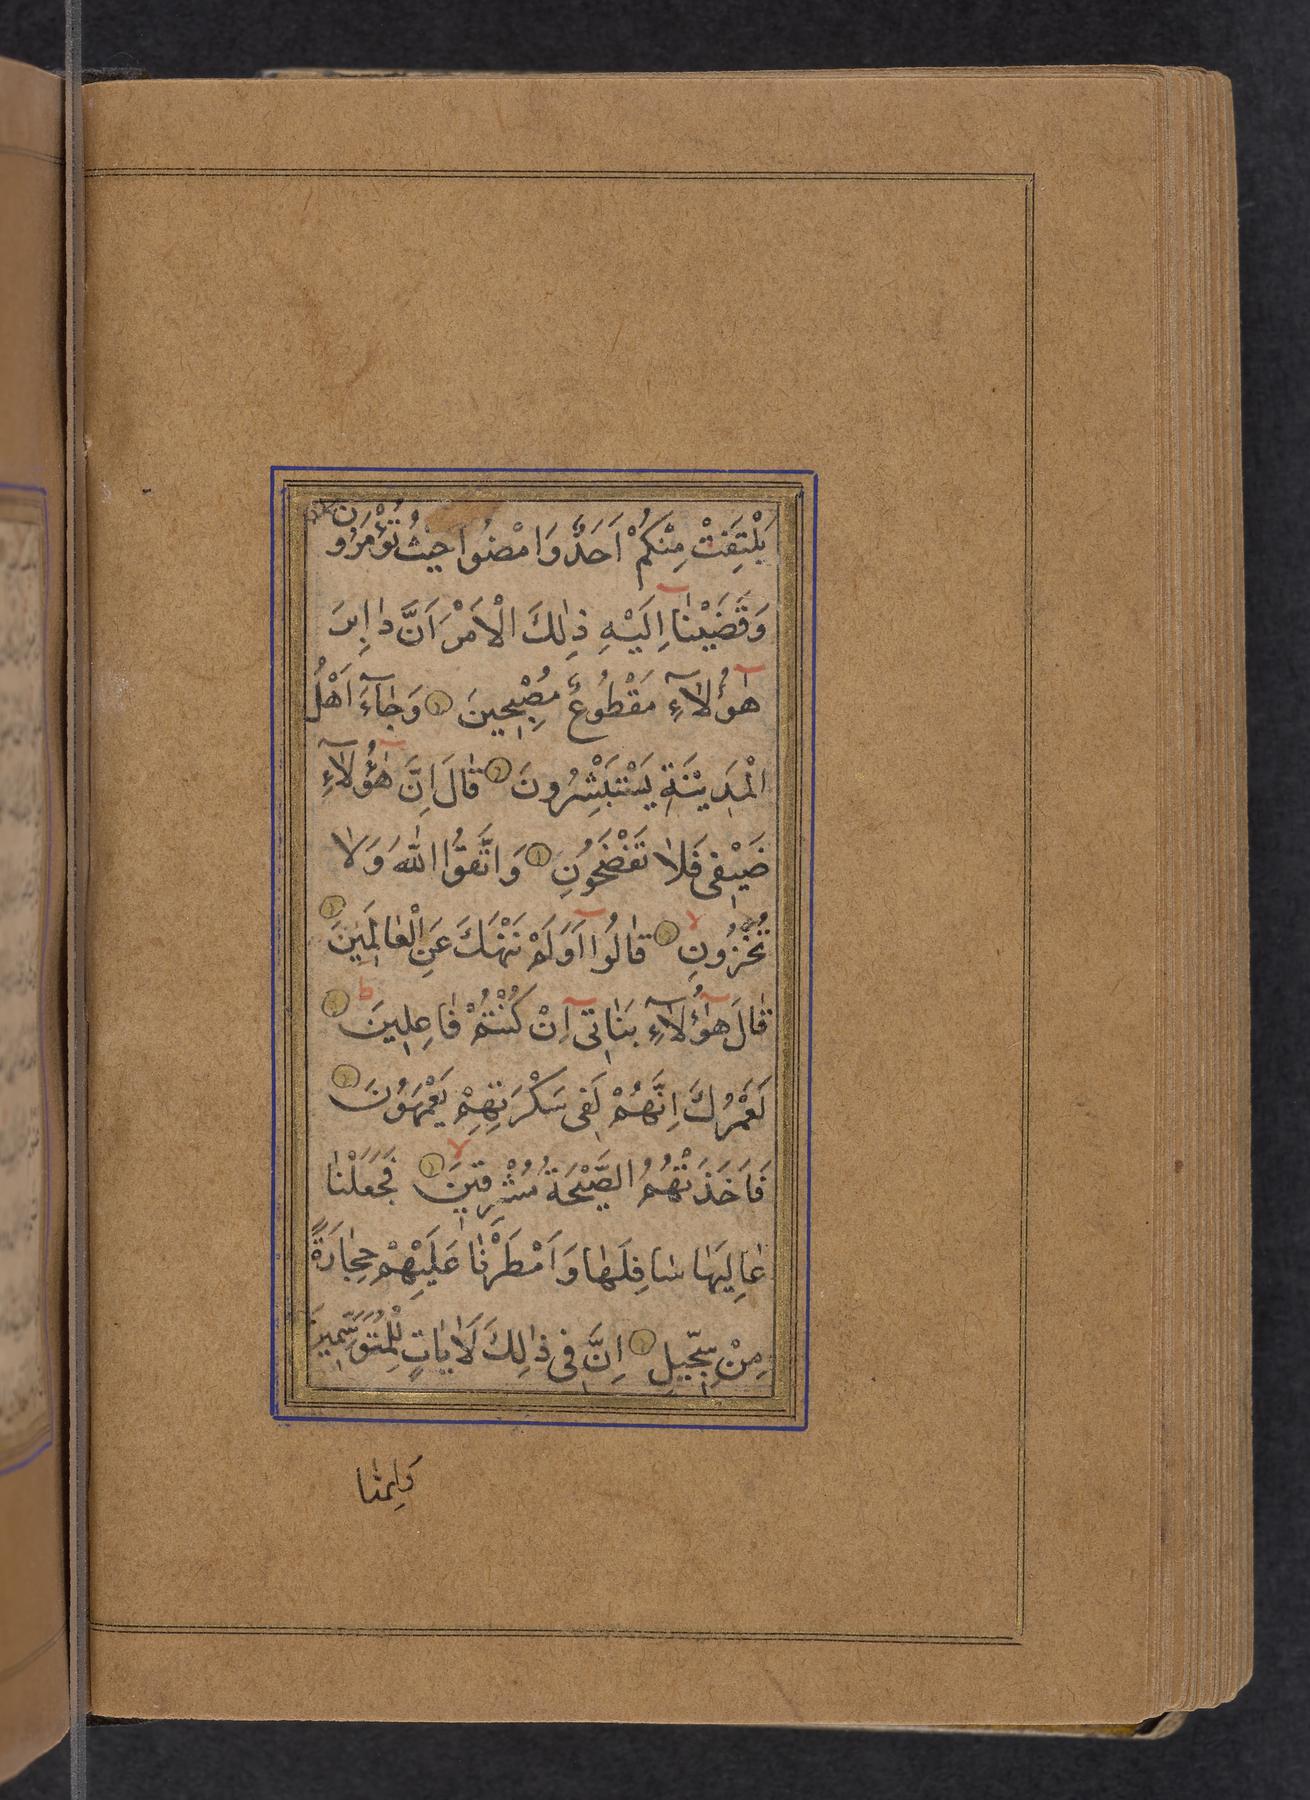 يَلْتَفِتْ مِنْكُمْ اَحَدٌ وَامْضُوا حَيْثُ تُؤْمَرُونَ
وَقَضَيْنٰٓا اِلَيْهِ ذٰلِكَ الْاَمْرَ اَنَّ دٰابِرَ
هٰٓؤُلٰٓاءِ مَقْطُوعٌ مُصْبِحٖينَ وَجٰٓاءَ اَهْلُ
الْمَدٖينَةِ يَسْتَبْشِرُونَ قٰالَ اِنَّ هٰٓؤُلٰٓاءِ
ضَيْفٖى فَلٰا تَفْضَحُونِ وَاتَّقُوا اللّٰهَ وَلٰا
تُخْزُونِ قٰالُٓوا اَوَلَمْ نَنْهَكَ عَنِ الْعٰالَمٖينَ
قٰالَ هٰٓؤُلٰٓاءِ بَنٰاتٖٓى اِنْ كُنْتُمْ فٰاعِلٖينَ
لَعَمْرُكَ اِنَّهُمْ لَفٖى سَكْرَتِهِمْ يَعْمَهُونَ
فَاَخَذَتْهُمُ الصَّيْحَةُ مُشْرِقٖينَ فَجَعَلْنٰا
عٰالِيَهٰا سٰافِلَهٰا وَاَمْطَرْنٰا عَلَيْهِمْ حِجٰارَةً
مِنْ سِجّٖيلٍ اِنَّ فٖى ذٰلِكَ لَاٰيٰاتٍ لِلْمُتَوَسِّمٖينَ